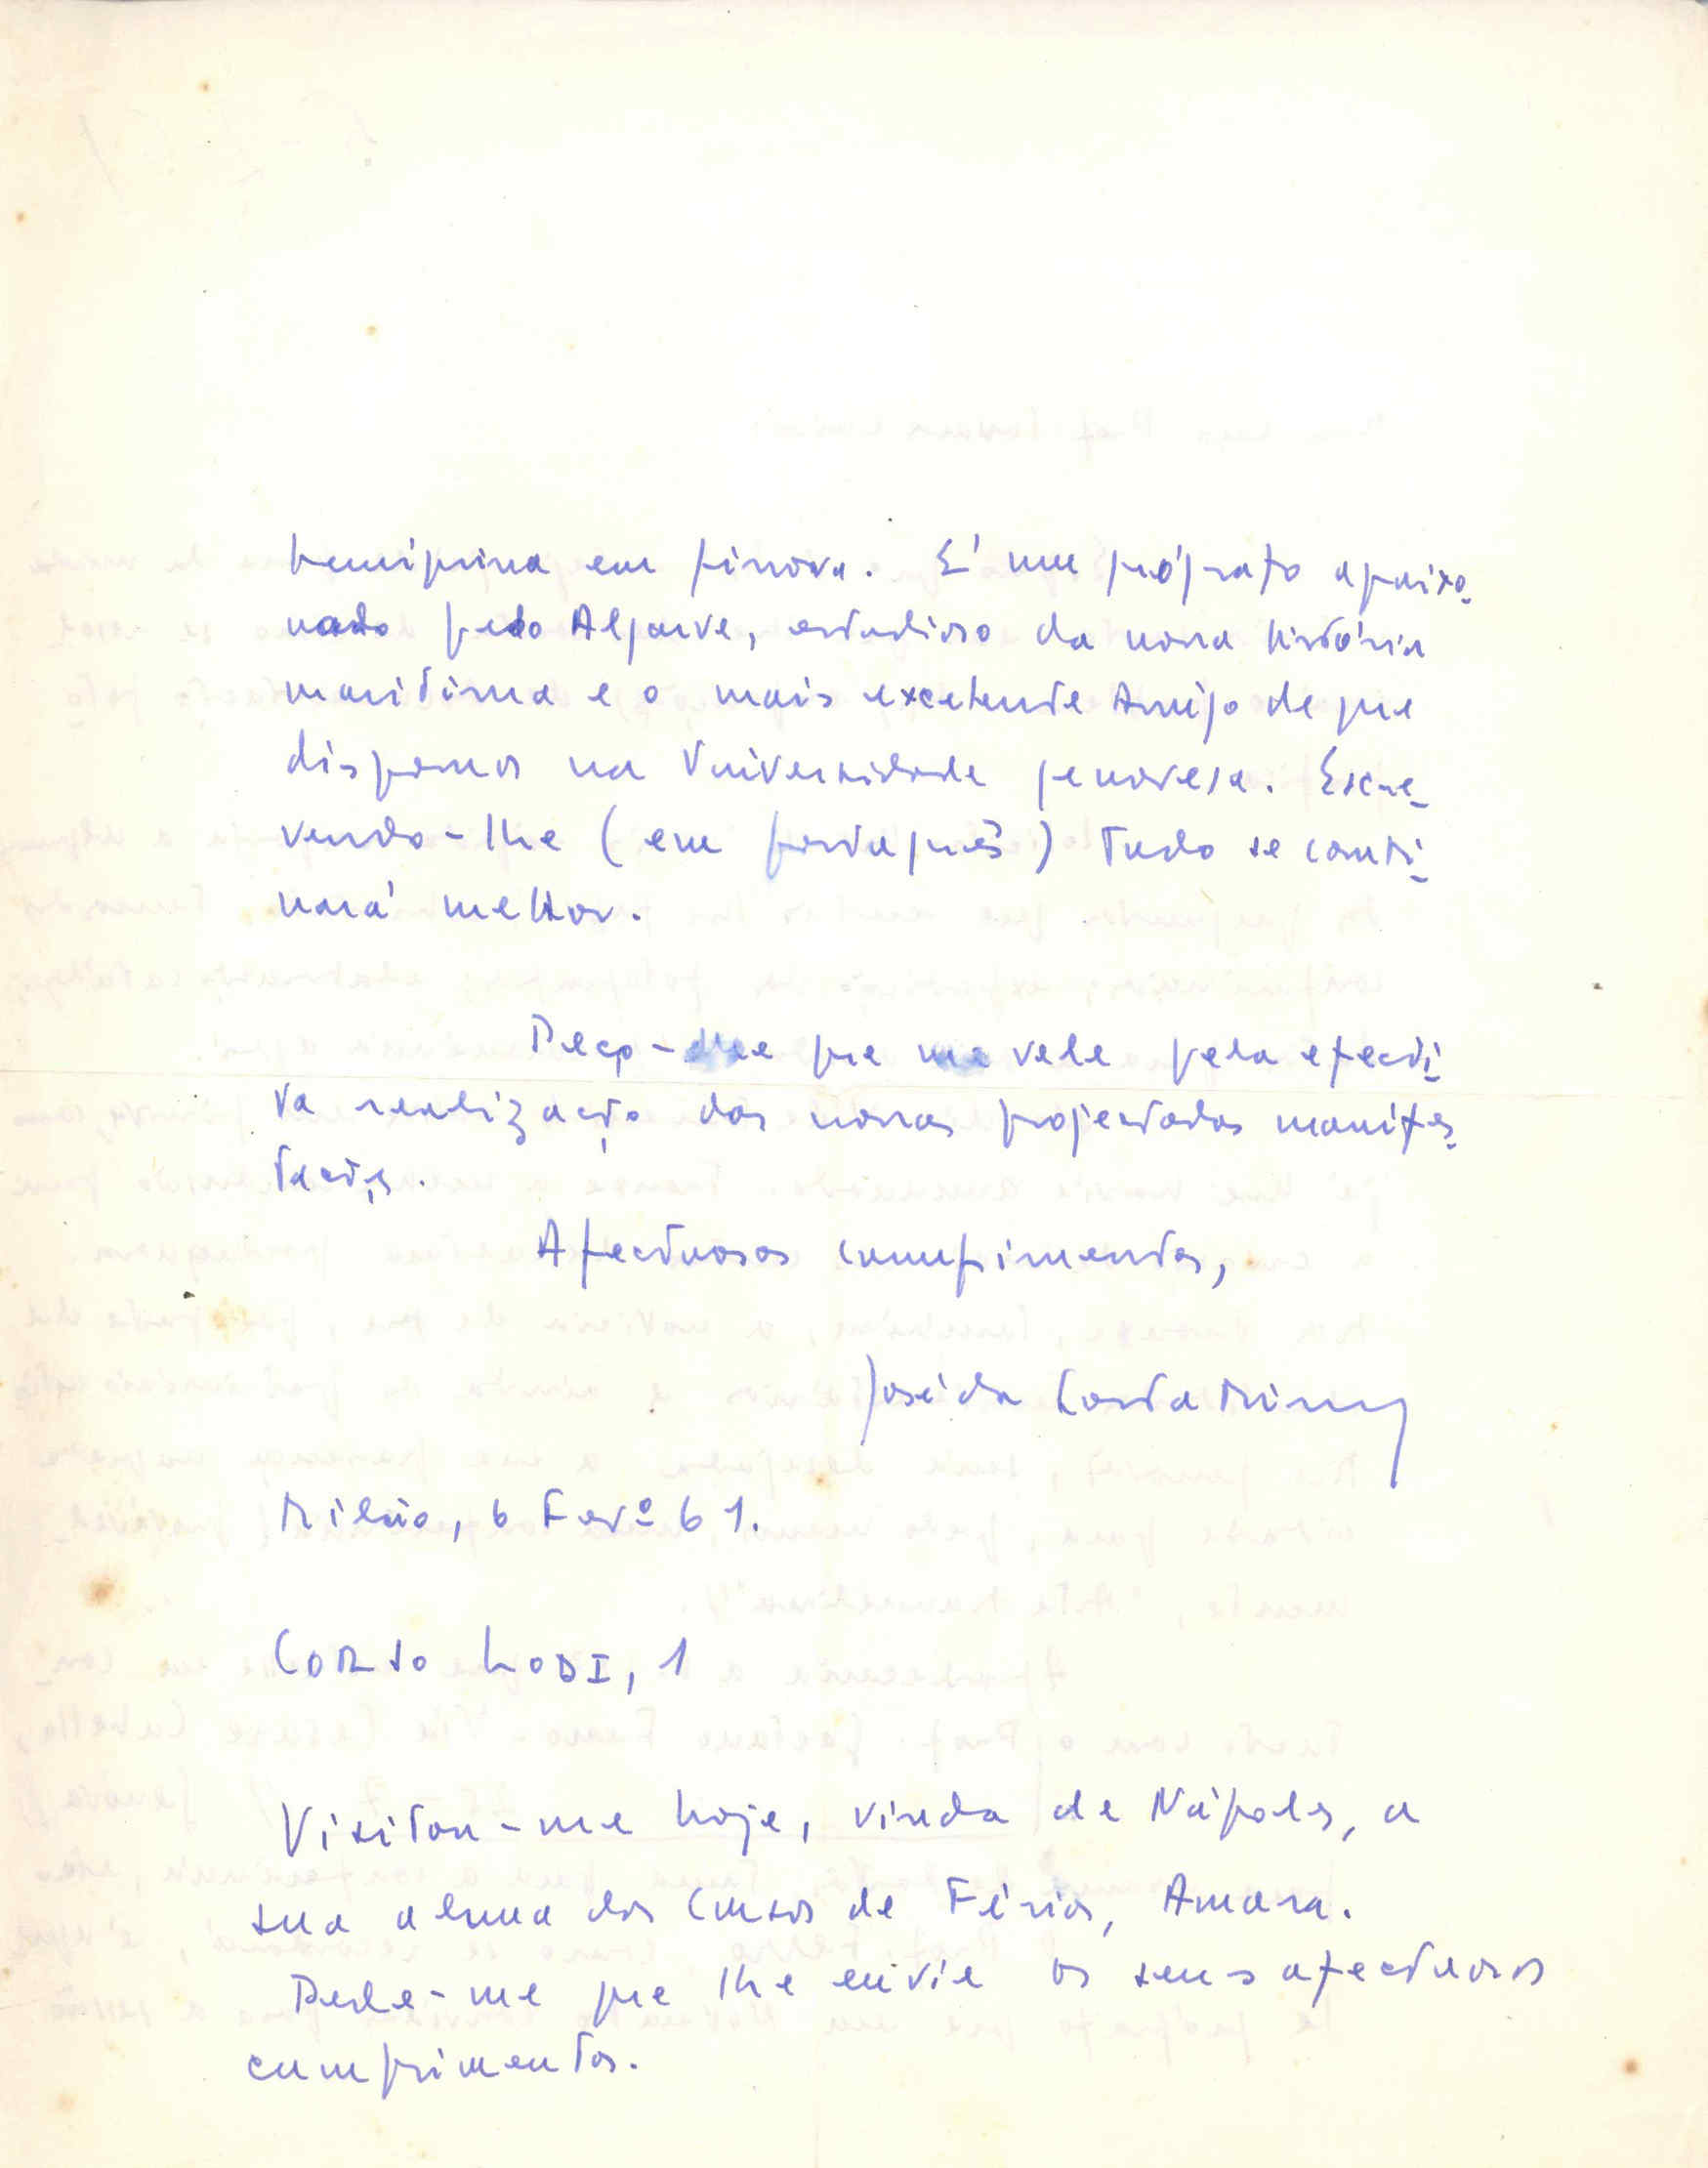 henriquina em Génova. É um geógrafo apaixo-
nado pelo Algarve, estudioso da nossa história
marítima e o mais excelente Amigo de que
dispomos na Universidade genovesa. Escre-
vendo-lhe (em português) tudo se combi-
nará melhor.
Peço-lhe que me vele pela efecti-
va realização das nossas projectadas manifes-
tações.
Afectuosos cumprimentos,
José da Costa Miranda
Milão, 6 Fevº 61.
CORSO LODI, 1
Visitou-me hoje, vinda de Nápoles, a
sua aluna dos Cursos de Férias, Amara.
Pede-me que lhe envie os seus afectuosos
cumprimentos.